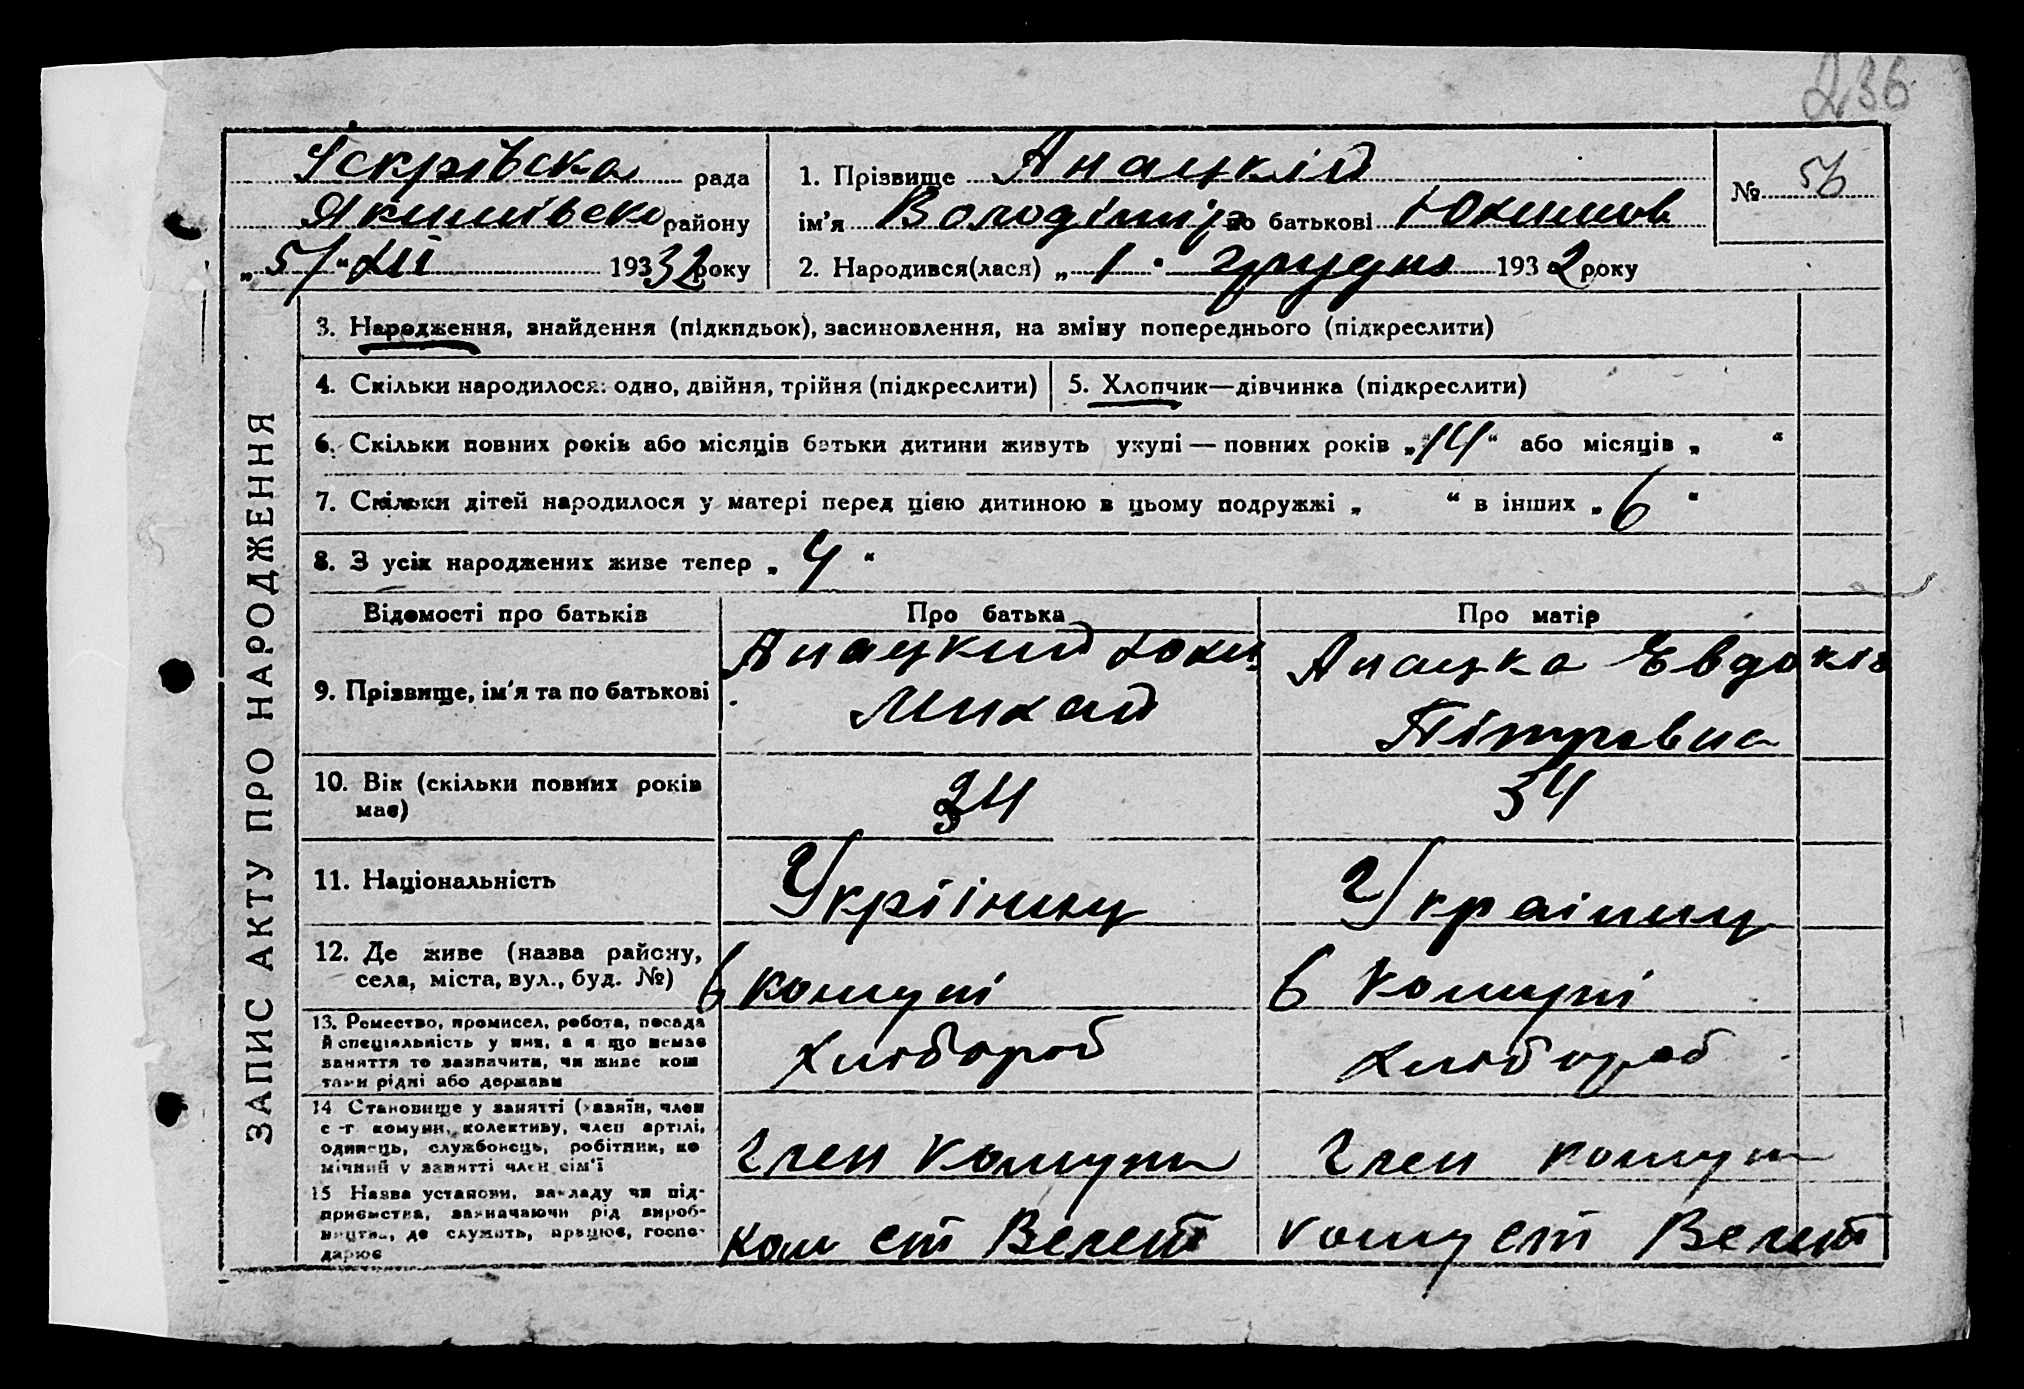 236
Іскрівска рада
Якимівско району
„ 5/ “ XII 193 32 року
1. Прізвище Анацкій
ім'я Володімір по батькові Юхимов
2. Народився(лася) „ 1 “ грудня 193 2 року
№ 56
ЗАПИС АКТУ ПРО НАРОДЖЕННЯ
3. Народження, знайдення (підкидьок), засиновлення, на зміну попереднього (підкреслити)
4. Скільки народилося: одно, двійня, трійня (підкреслити)
5. Хлопчик—дівчинка (підкреслити)
6. Скільки повних років або місяців батьки дитини живуть укупі — повних років „ 14 “ або місяців „ “
7. Скільки дітей народилося у матері перед цією дитиною в цьому подружжі „ “ в інших „ 6 “
8. З усіх народжених живе тепер „ 4 “
Відомості про батьків
Про батька
Про матір
9. Прізвище, ім'я та по батькові
Анацкий
Михай
Анацка Євдокія
Пітровна
10. Вік (скільки повних років
має)
34
34
11. Національність
Укріінку
Украінку
12. Де живе (назва району,
села, міста, вул., буд. №)
в комуні
в комуні
13. Ремество, промисел, робота, посада
й спеціяльність у них, а я що немає
заняття то зазначити, чи живе кош
тами рідні або держави
хлюбороб
хлюбороб
14 Становище у занятті (хазяїн, член
с-г комуни, колективу, член артілі,
одинець, службовець, робітник, по
мічний у занятті член сім'ї
член комуни
член комуни
15 Назва установи, закладу чи під-
приємства, зазначаючи рід вироб-
ництва, де служить, працює, госпо-
дарює
ком ст Велет
кому ст Велет